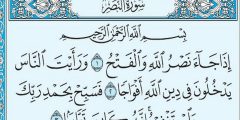 سُورَةُ النَّصْرِ
بِسْمِ اللَّهِ الرَّحْمَٰنِ الرَّحِيمِ
إِذَا جَاءَ نَصْرُ اللَّهِ وَالْفَتْحُ ۝١ وَرَأَيْتَ النَّاسَ
يَدْخُلُونَ فِي دِينِ اللَّهِ أَفْوَاجًا ۝٢ فَسَبِّحْ بِحَمْدِ رَبِّكَ